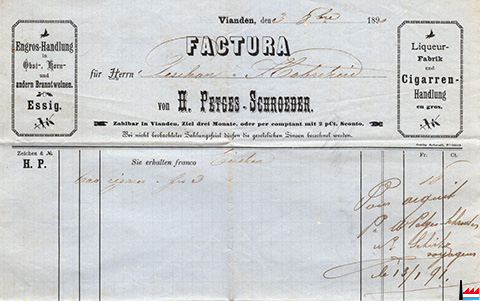 Vianden, den 3 8bre 189
Engros-Handlung
in
Obst-, Korn-
und
andern Branntweinen.
Essig.
FACTURA
für Herrn
von H. Petges-Schroeder.
Zahlbar in Vianden. Ziel drei Monate, oder per comptant mit 2 pCt. Sconto.
Bei nicht beobachteter Zahlungsfrist dürfen die gesetzlichen Zinsen berechnet werden.
Liqueur-
Fabrik
und
Cigarren-
Handlung
en gros.
Zeichen & №.
H. P.
Sie erhalten franco
Fr. Ct.
Pour acquit
Pr de Petges Schroeder
voyageur
le 13/1 91.